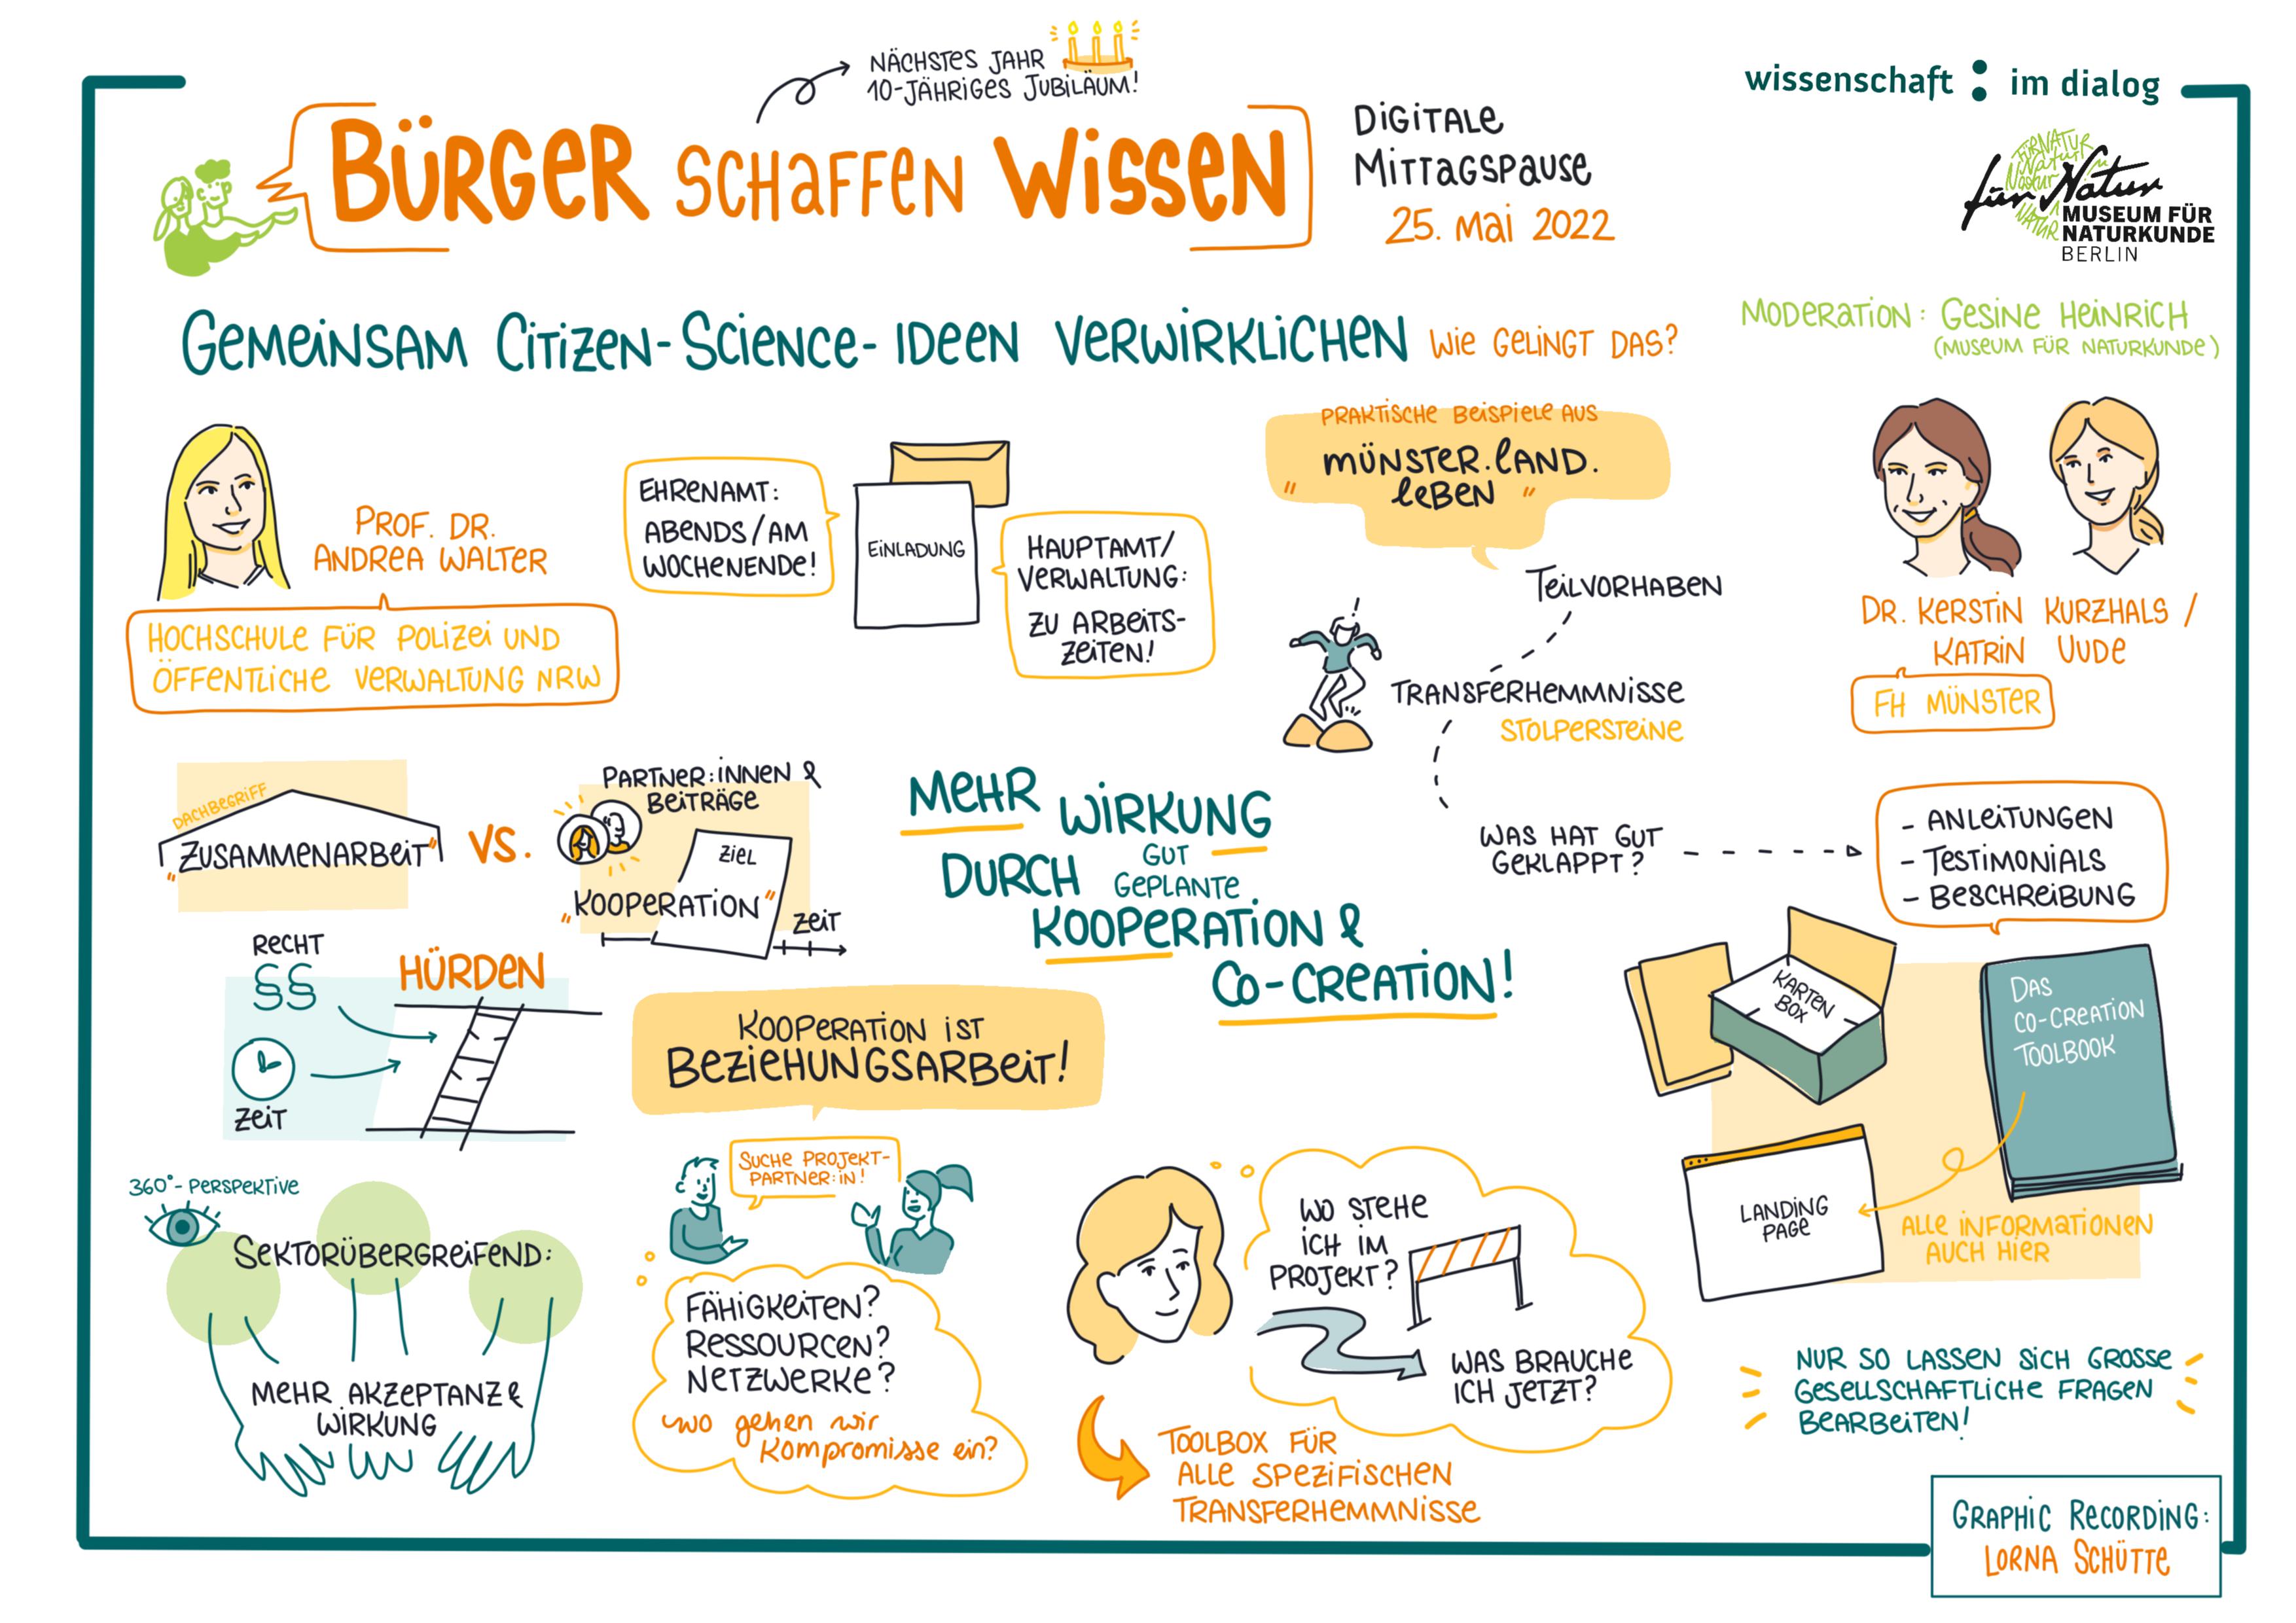 NÄCHSTES JAHR
10-JÄHRIGES JUBILÄUM!
BÜRGER SCHAFFEN WISSEN
DIGITALE
MITTAGSPAUSE
25. MAI 2022
wissenschaft : im dialog
für Natur
MUSEUM FÜR
NATURKUNDE
BERLIN
GEMEINSAM CITIZEN-SCIENCE-IDEEN VERWIRKLICHEN WIE GELINGT DAS?
MODERATION: GESINE HEINRICH
(MUSEUM FÜR NATURKUNDE)
PROF. DR.
ANDREA WALTER
HOCHSCHULE FÜR POLIZEI UND
ÖFFENTLICHE VERWALTUNG NRW
EHRENAMT:
ABENDS/AM
WOCHENENDE!
EINLADUNG
HAUPTAMT/
VERWALTUNG:
ZU ARBEITS-
ZEITEN!
PRAKTISCHE BEISPIELE AUS
"MÜNSTER.LAND.
LEBEN"
TEILVORHABEN
TRANSFERHEMMNISSE
STOLPERSTEINE
WAS HAT GUT
GEKLAPPT?
DR. KERSTIN KURZHALS /
KATRIN UUDE
FH MÜNSTER
- ANLEITUNGEN
- TESTIMONIALS
- BESCHREIBUNG
DACHBEGRIFF
"ZUSAMMENARBEIT"
VS.
PARTNER:INNEN &
BEITRÄGE
ZIEL
"KOOPERATION"
ZEIT
MEHR WIRKUNG
DURCH GUT
GEPLANTE
KOOPERATION &
CO-CREATION!
RECHT
§§
HÜRDEN
ZEIT
KOOPERATION IST
BEZIEHUNGSARBEIT!
KARTEN
BOX
DAS
CO-CREATION
TOOLBOOK
LANDING
PAGE
ALLE INFORMATIONEN
AUCH HIER
360°-PERSPEKTIVE
SEKTORÜBERGREIFEND:
MEHR AKZEPTANZ &
WIRKUNG
SUCHE PROJEKT-
PARTNER:IN!
FÄHIGKEITEN?
RESSOURCEN?
NETZWERKE?
wo gehen wir
Kompromisse ein?
WO STEHE
ICH IM
PROJEKT?
WAS BRAUCHE
ICH JETZT?
TOOLBOX FÜR
ALLE SPEZIFISCHEN
TRANSFERHEMMNISSE
NUR SO LASSEN SICH GROSSE
GESELLSCHAFTLICHE FRAGEN
BEARBEITEN!
GRAPHIC RECORDING:
LORNA SCHÜTTE